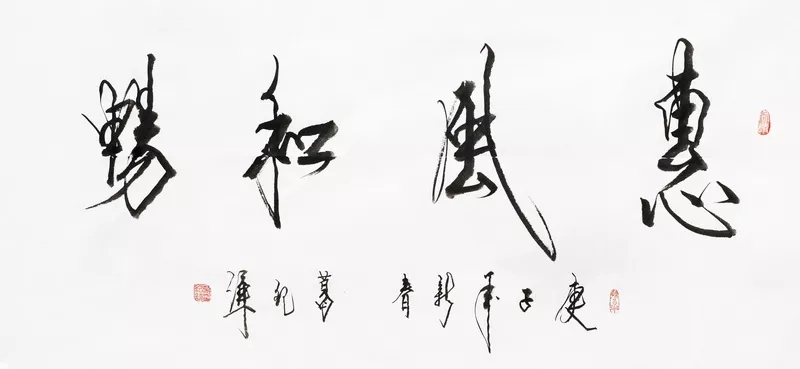 惠風和暢
庚子年新春 葛